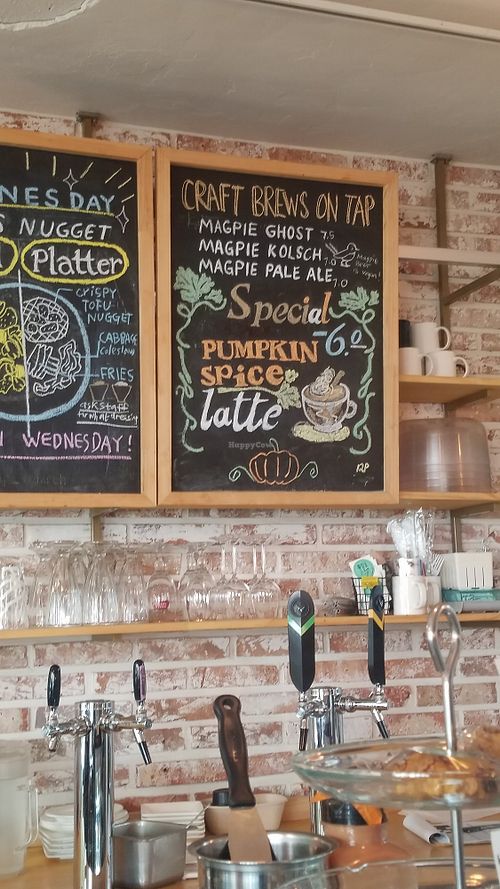 NESDAY
S NUGGET
Platter
CRISPY
TOFU
NUGGET
CABBAGE
coleslaw
FRIES
ask staff
for what deeper
N WEDNESDAY!
CRAFT BREWS ON TAP
MAGPIE GHOST 7.5
MAGPIE KOLSCH 7.0
MAGPIE PALE ALE 7.0
Magpie
Beer
is vegan!
Special
6.0
PUMPKIN
spice
latte
HappyCow